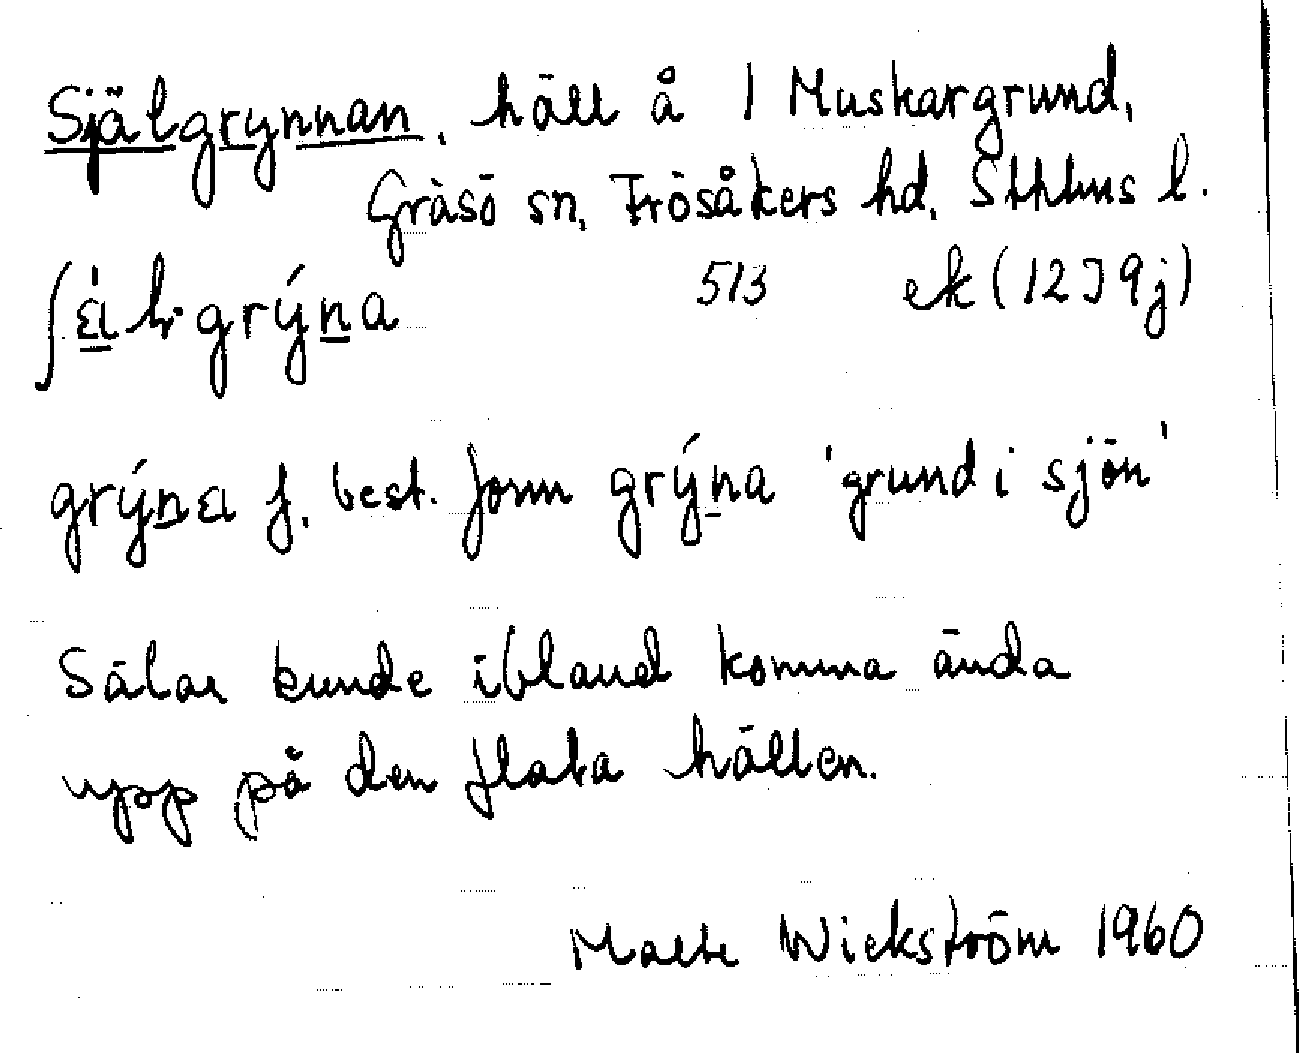 Självgrynnan, häll å 1 Muskargrund,
Gräsö sn, Frösåkers hd, Sthlms l.
513 ek (12 I 9j)
grýna f, best. form grýna 'grund i sjön'
Sälar kunde ibland komma ända
upp på den flata hällen.
Malte Wickström 1960